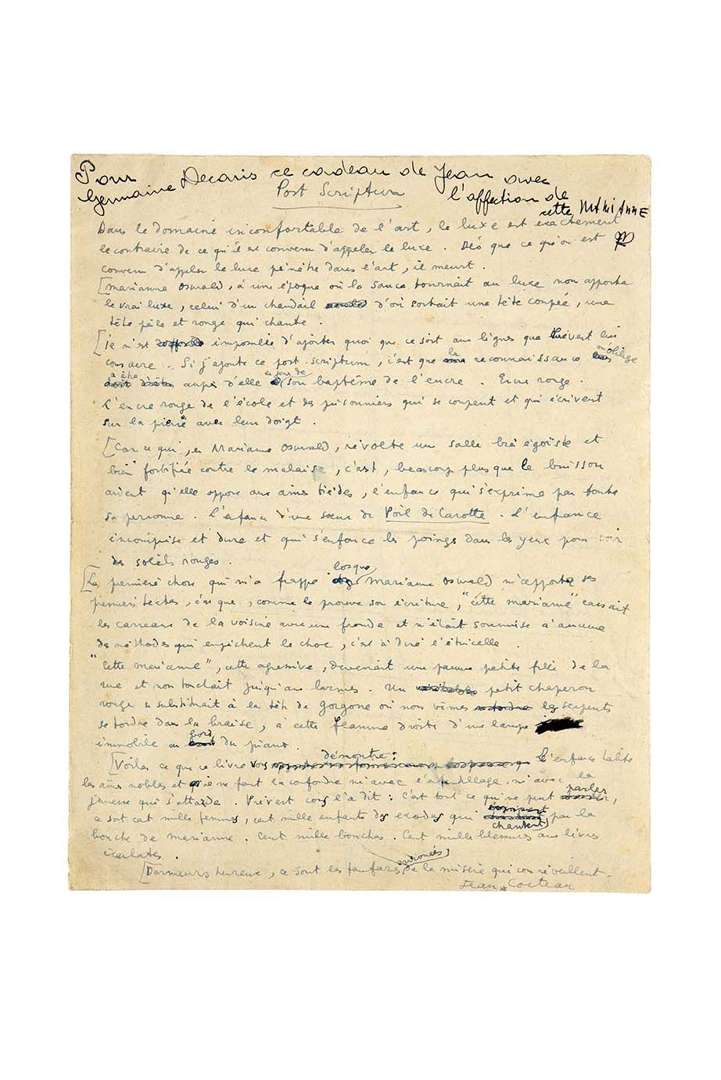 Pour Germaine Decaris ce cadeau de Jean avec
l'affection de
cette MARIANNE
Post Scriptum
Dans le domaine inconfortable de l'art, le luxe est exactement
le contraire de ce qu'il est convenu d'appeler le luxe. Dès que ce qu'on est
convenu d'appeler le luxe pénètre dans l'art, il meurt.
[Marianne Oswald, à une époque où la sauce tournait au luxe nous apporta
le vrai luxe, celui d'un chandail d'où sortait une tête coupée, une
tête pâle et rouge qui chante.
[Je n'est impossible d'ajouter quoi que ce soit aux lignes que Prévert lui
consacre. Si j'ajoute ce post-scriptum, c'est que la reconnaissance oblige
a être auprès d'elle le jour de son baptême de l'encre. Encre rouge.
L'encre rouge de l'école et des prisonniers qui se coupent et qui écrivent
sur la pierre avec leur doigt.
[Car ce qui, en Marianne Oswald, révolte une salle bien égoïste et
bien fortifiée contre le malaise, c'est, beaucoup plus que le buisson
ardent qu'elle oppose aux âmes tièdes, l'enfance qui s'exprime par toute
sa personne. L'enfance d'une sœur de Poil de Carotte. L'enfance
incomprise et dure et qui s'enfonce les poings dans les yeux pour voir
des soleils rouges.
[La première chose qui m'a frappé lorsque Marianne Oswald m'apporta ses
premiers textes, c'est que, comme le prouve son écriture, "cette Marianne" cassait
les carreaux de la voisine avec une fronde et n'était soumise à aucune
des méthodes qui empêchent le choc, c'est à dire l'étincelle.
"Cette Marianne", cette agressive, devenait une pauvre petite fille de la
rue et nous touchait jusqu'aux larmes. Un petit chaperon
rouge se substituait à la tête de gorgone où nous vîmes les serpents
se tordre dans la braise, à cette flamme droite d'une lampe
immobile au bord du piano.
[Voilà ce que ce livre démontre: L'enfance hante
les âmes nobles et il ne faut la confondre ni avec ni avec la
jeunesse qui s'attarde. Prévert vous l'a dit: C'est tout ce qui ne peut parler,
ce sont cent mille femmes, cent mille enfants des exodes qui chantent par la
bouche de Marianne. Cent mille bouches. Cent mille blessures aux lèvres
écarlates.
[Dormeurs heureux, ce sont les fanfares de la misère qui vous réveillent.
Jean Cocteau